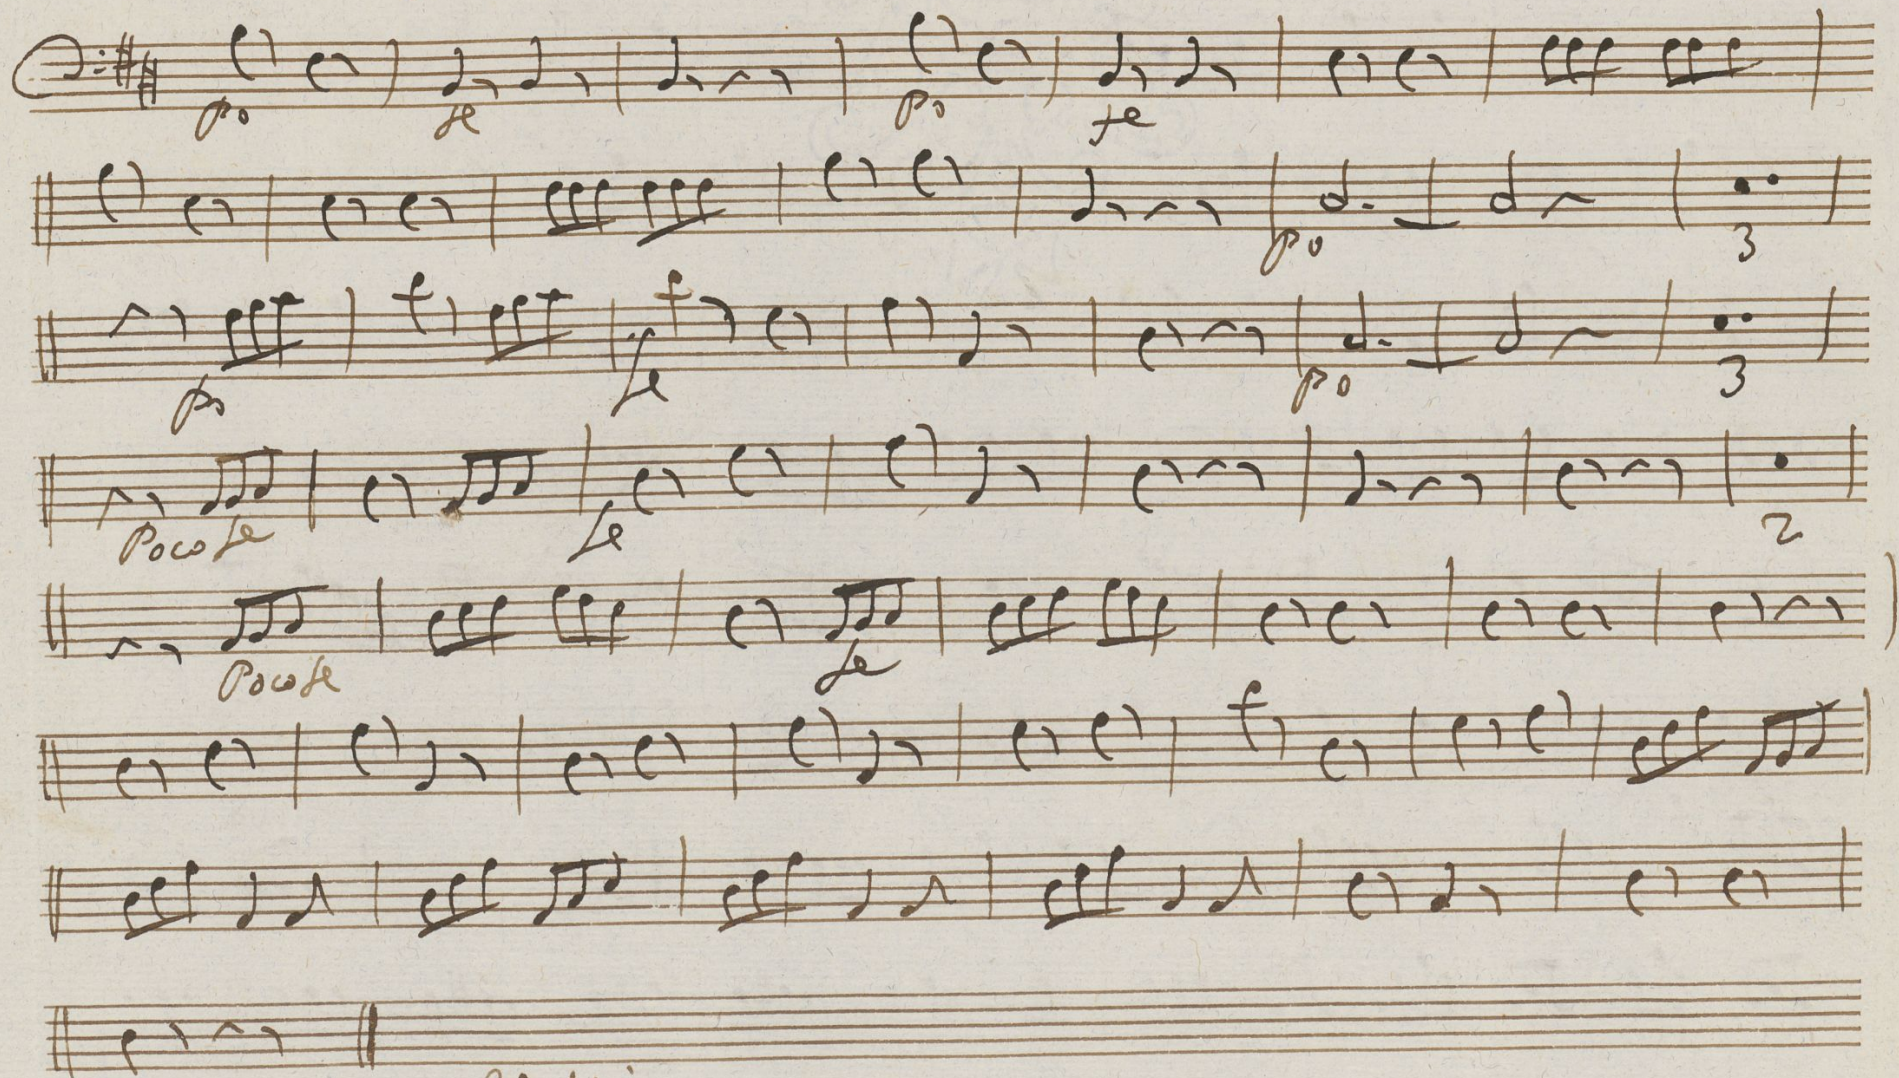 po fe po fe
po 3
po fe po 3
Poco fe fe 2
Poco fe fe